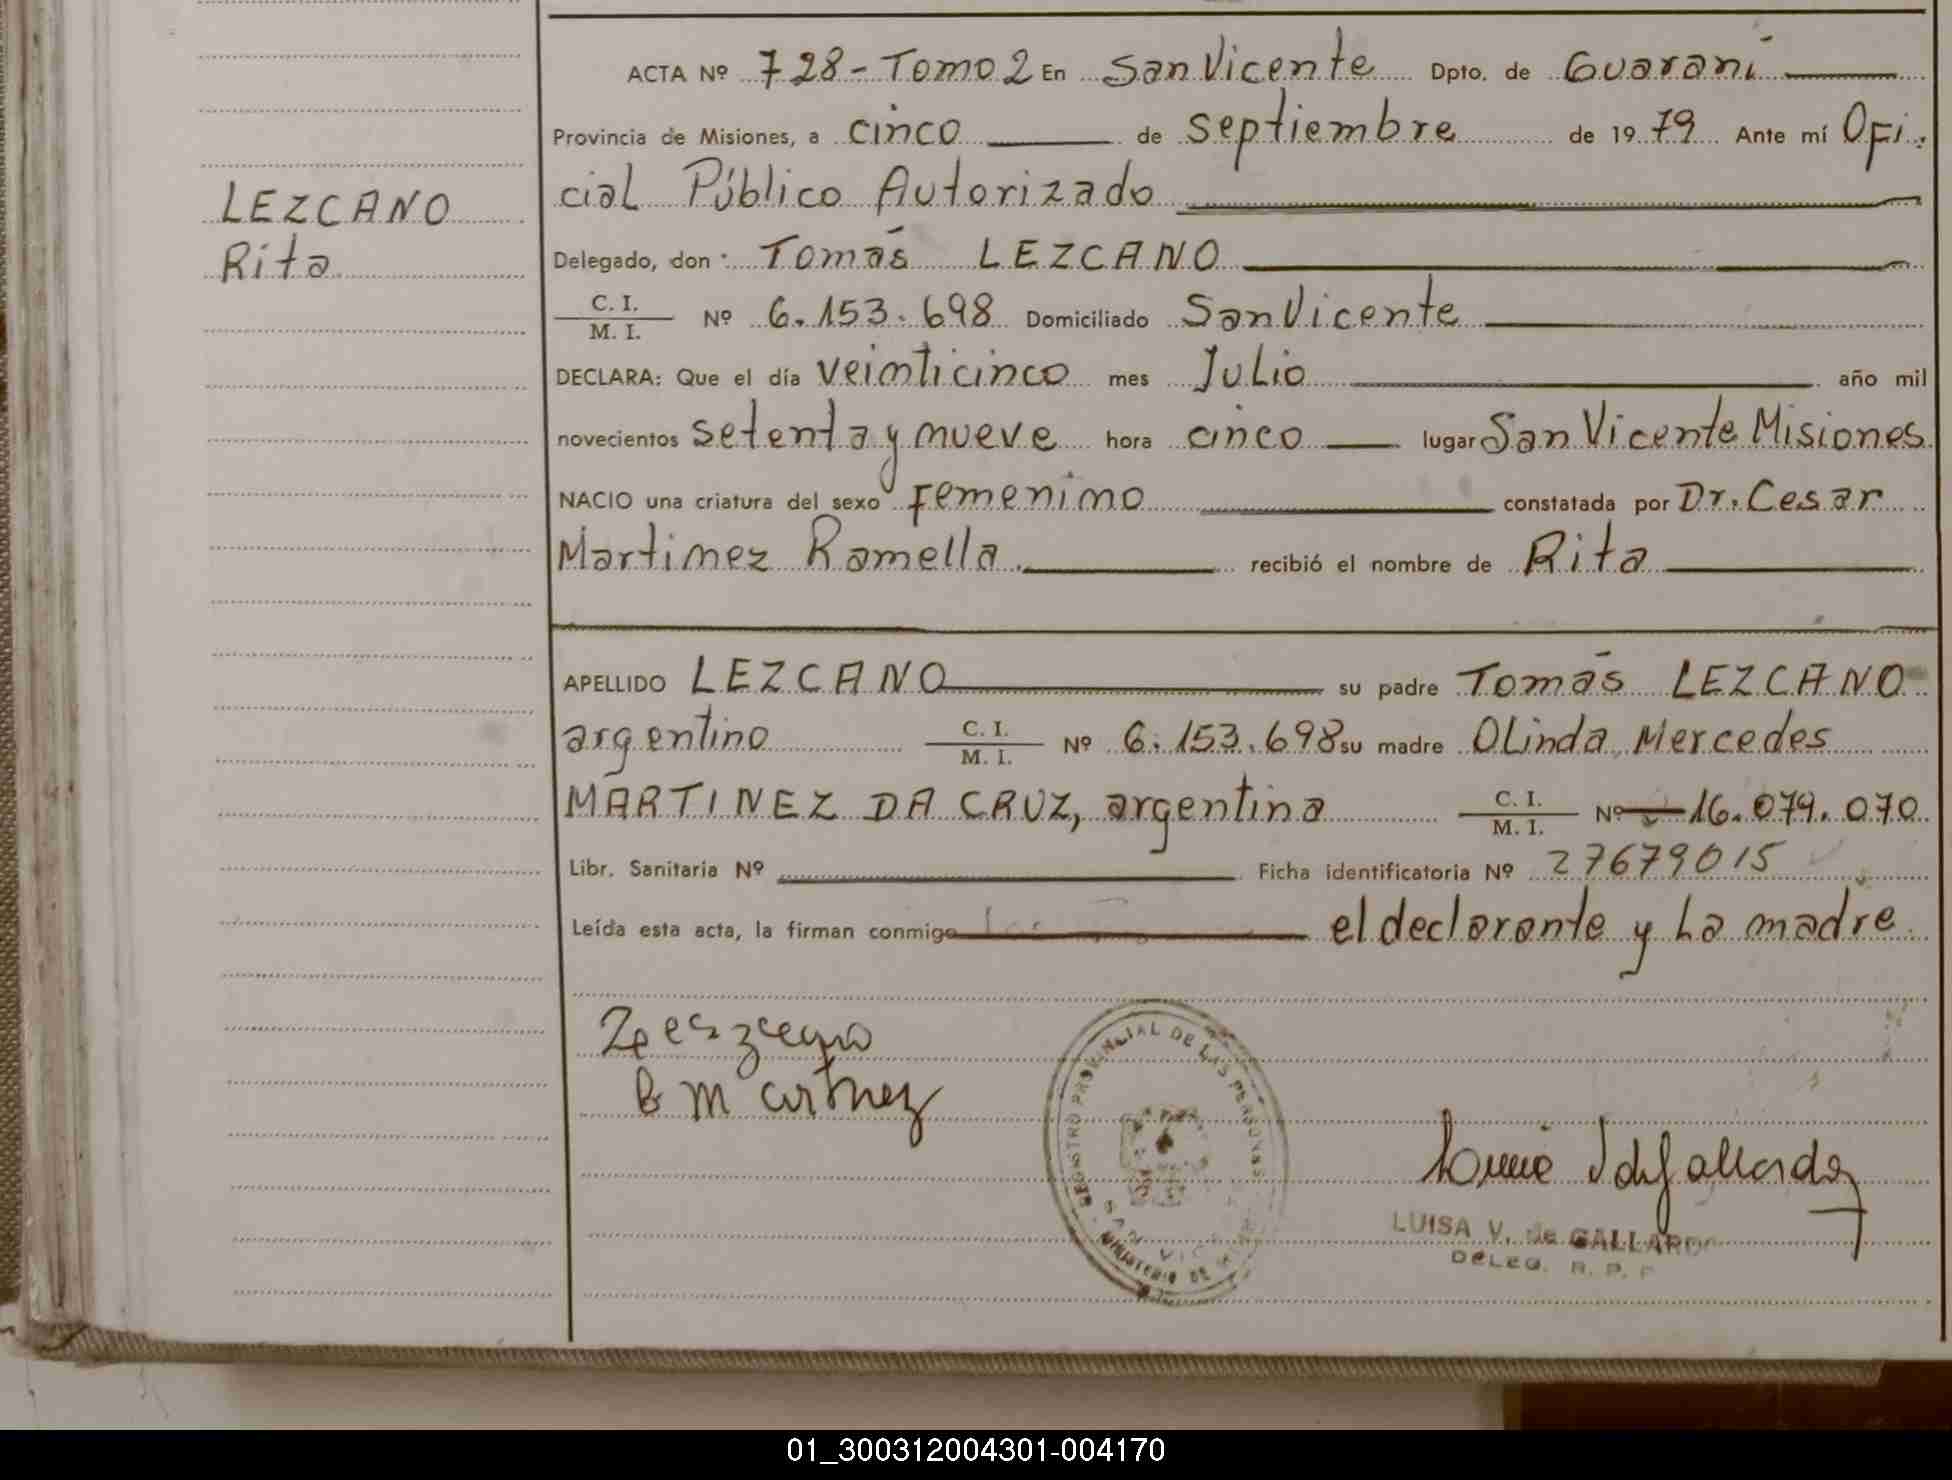 LEZCANO
Rita
ACTA Nº 728-Tomo 2 En San Vicente Dpto. de Guaraní
Provincia de Misiones, a cinco de septiembre de 1979 Ante mí Ofi-
cial Público Autorizado
Delegado, don: Tomás LEZCANO
C. I.
M. I. Nº 6.153.698 Domiciliado San Vicente
DECLARA: Que el día veinticinco mes Julio año mil
novecientos setenta y nueve hora cinco lugar San Vicente Misiones
NACIO una criatura del sexo Femenino constatada por Dr. Cesar
Martinez Ramella. recibió el nombre de Rita
APELLIDO LEZCANO su padre Tomás LEZCANO
argentino C. I.
M. I. Nº 6.153.698 su madre Olinda Mercedes
MARTINEZ DA CRUZ, argentina C. I.
M. I. Nº 16.079.070
Libr. Sanitaria Nº Ficha identificatoria Nº 27679015
Leída esta acta, la firman conmigo el declarante y La madre
Martinez
REGISTRO PROVINCIAL DE LAS PERSONAS
SAN VIC
MINISTERIO DE
LUISA V. de GALLARDO
DELEG. R. P. P
01_300312004301-004170